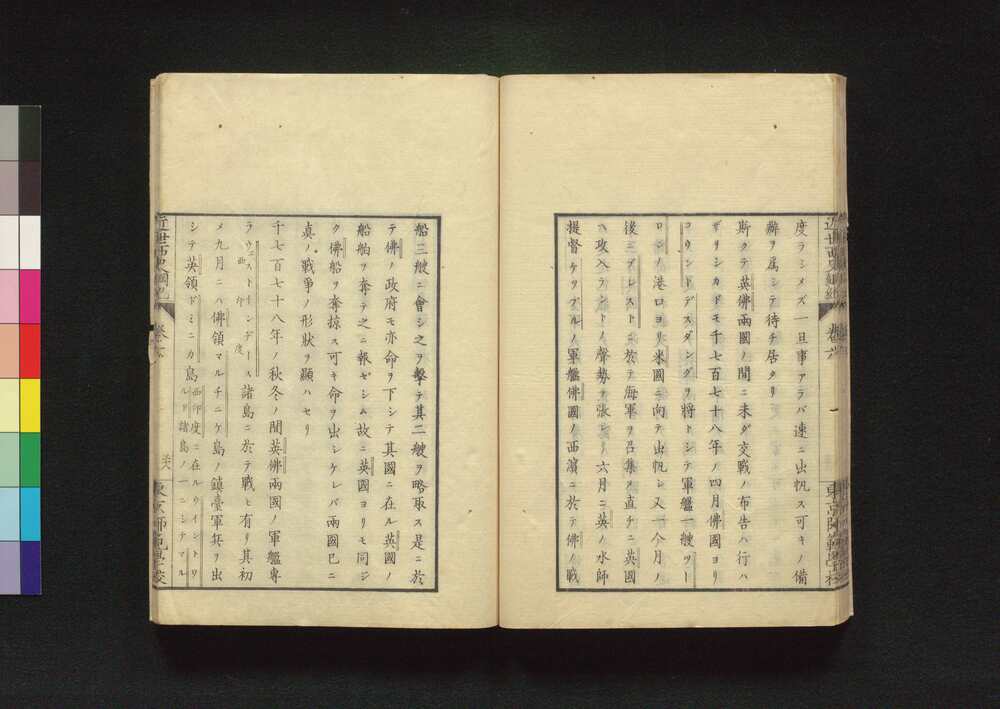 度ラシメズ一旦事アラバ速ニ出帆ス可キノ備
辦ヲ属シテ待チ居タリ
斯クテ英佛兩國ノ間ニ未ダ交戰ノ布告ハ行ハ
ザリシカドモ千七百七十八年ノ四月佛國ヨリ
コウントデスダングヲ將トシテ軍艦一艘ツー
ロンノ港口ヨリ米國ニ向テ出帆シ又今月ノ
後ニブレストニ於テ海軍ヲ召集メ直チニ英國
ヘ攻入ラントノ聲勢ヲ張レリ六月ニ英ノ水師
提督ケツプルノ軍艦佛國ノ西濱ニ於テ佛ノ戰
近世西史綱紀
卷六
船三艘ニ會シ之ヲ擊テ其二艘ヲ略取ス是ニ於
テ佛ノ政府モ亦命ヲ下シテ其國ニ在ル英國ノ
船舶ヲ奪テ之ニ報ゼシム故ニ英國ヨリモ同ジ
ク佛船ヲ奪掠ス可キ命ヲ出シケレバ兩國已ニ
真ノ戰爭ノ形狀ヲ顯ハセリ
千七百七十八年ノ秋冬ノ間英佛兩國ノ軍艦專
ラウェストインデース諸島ニ於テ戰ヒ有リ其初
西印度
メ九月ニハ佛領マルチニケ島ノ鎮臺軍兵ヲ出
シテ英領ドミニカ島
西印度ニ在ルウイントワ
ルド諸島ノ一ニシテマル
近世西史綱紀
卷六
東京師範學校